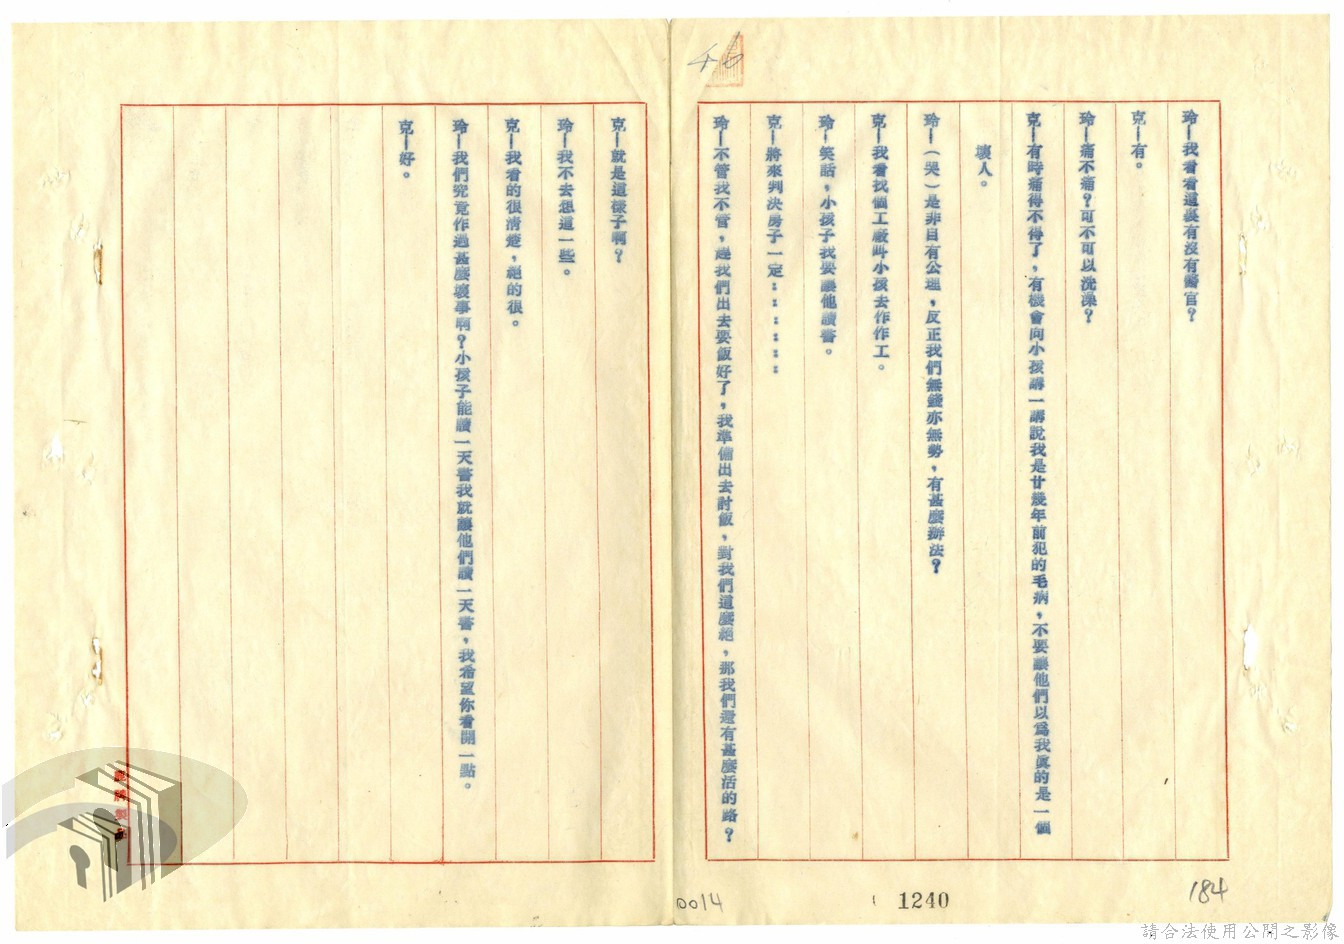 46
玲—我看看這裏有沒有醫官？
克—有。
玲—痛不痛？可不可以洗澡？
克—有時痛得不得了，有機會向小孩講一講說我是廿幾年前犯的毛病，不要讓他們以爲我眞的是一個
壞人。
玲—（哭）是非自有公理，反正我們無錢亦無勢，有甚麼辦法？
克—我看找個工廠叫小孩去作作工。
玲—笑話，小孩子我要讓他讀書。
克—將來判決房子一定：：：：：：
玲—不管我不管，趕我們出去要飯好了，我準備出去討飯，對我們這麼絕，那我們還有甚麼活的路？
克—就是這樣子啊？
玲—我不去想這一些。
克—我看的很清楚，絕的很。
玲—我們究竟作過甚麼壞事啊？小孩子能讀一天書我就讓他們讀一天書，我希望你看開一點。
克—好。
0014
1240
184
請合法使用公開之影像